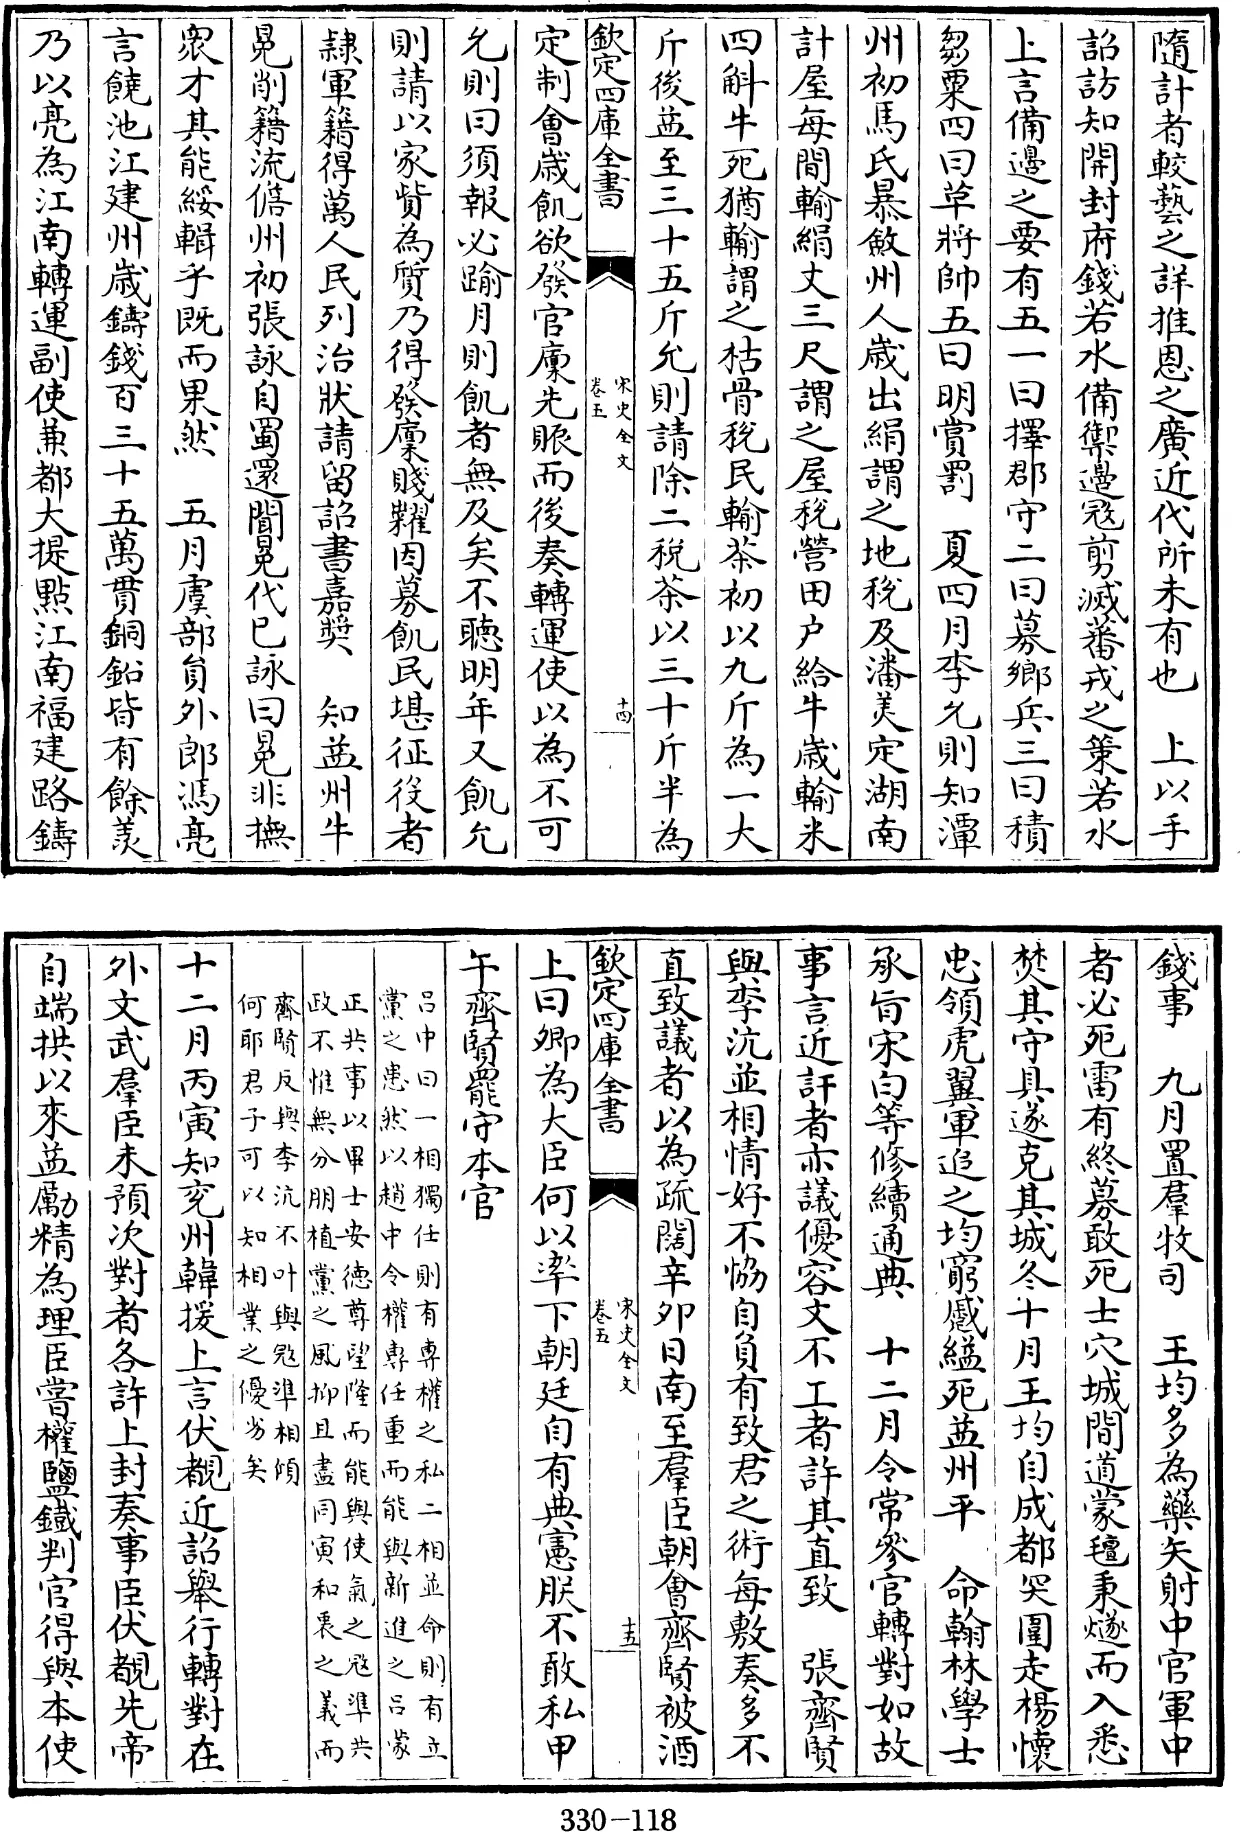 隨計者較藝之詳推恩之廣近代所未有也　上以手
詔訪知開封府錢若水備禦邊冦剪滅蕃戎之策若水
上言備邊之要有五一曰擇郡守二曰募鄉兵三曰積
芻粟四曰草將帥五曰明賞罰　夏四月李允則知潭
州初馬氏暴斂州人歲出絹謂之地稅及潘美定湖南
計屋每間輸絹丈三尺謂之屋稅營田户給牛歲輸米
四斛牛死猶輸謂之枯骨稅民輸茶初以九斤為一大
斤後益至三十五斤允則請除二稅茶以三十斤半為
欽定四庫全書
宋史全文
卷五
十四
定制會歲飢欲發官廩先賑而後奏轉運使以為不可
允則曰須報必踰月則飢者無及矣不聽明年又飢允
則請以家貲為質乃得發廩賤糶因募飢民堪征役者
隷軍籍得萬人民列治狀請留詔書嘉奬　知益州牛
冕削籍流儋州初張詠自蜀還聞冕代已詠曰冕非撫
衆才其能綏輯乎既而果然　五月虞部員外郎馮亮
言饒池江建州歲鑄錢百三十五萬貫銅鉛皆有餘羨
乃以亮為江南轉運副使兼都大提點江南福建路鑄
錢事　九月置羣牧司　王均多為藥矢射中官軍中
者必死雷有終募敢死士穴城間道蒙氊秉燧而入悉
焚其守具遂克其城冬十月王均自成都突圍走楊懷
忠領虎翼軍追之均窮蹙縊死益州平　命翰林學士
承旨宋白等修續通典　十二月令常參官轉對如故
事言近訐者亦議優容文不工者許其直致　張齊賢
與李沆並相情好不恊自負有致君之術每敷奏多不
直致議者以為疏闊辛夘日南至羣臣朝會齊賢被酒
欽定四庫全書
宋史全文
卷五
十五
上曰卿為大臣何以率下朝廷自有典憲朕不敢私甲
午齊賢罷守本官
吕中曰一相獨任則有專權之私二相並命則有立
黨之患然以趙中令權專任重而能與新進之吕蒙
正共事以畢士安德尊望隆而能與使氣之冦準共
政不惟無分朋植黨之風抑且盡同寅和衷之義而
齊賢反與李沆不叶與冦準相傾
何耶君子可以知相業之優劣矣
十二月丙寅知兖州韓援上言伏覩近詔舉行轉對在
外文武羣臣未預次對者各許上封奏事臣伏覩先帝
自端拱以來益勵精為理臣嘗權鹽鐵判官得與本使
330-118